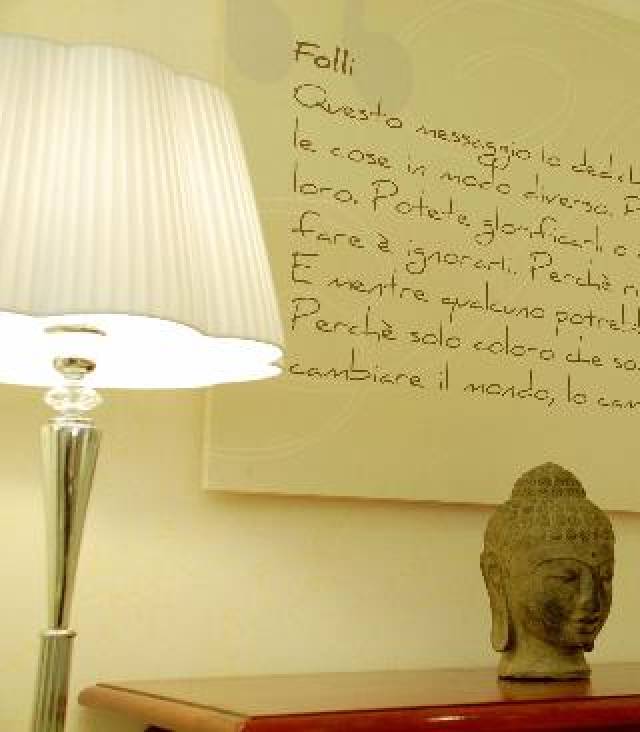 Folli
Questo messaggio lo
le cose in modo diverso.
loro. Potete glorificarli o
fare è ignorarli. Perchè
E mentre qualcuno
Perchè solo coloro che
cambiare il mondo, lo